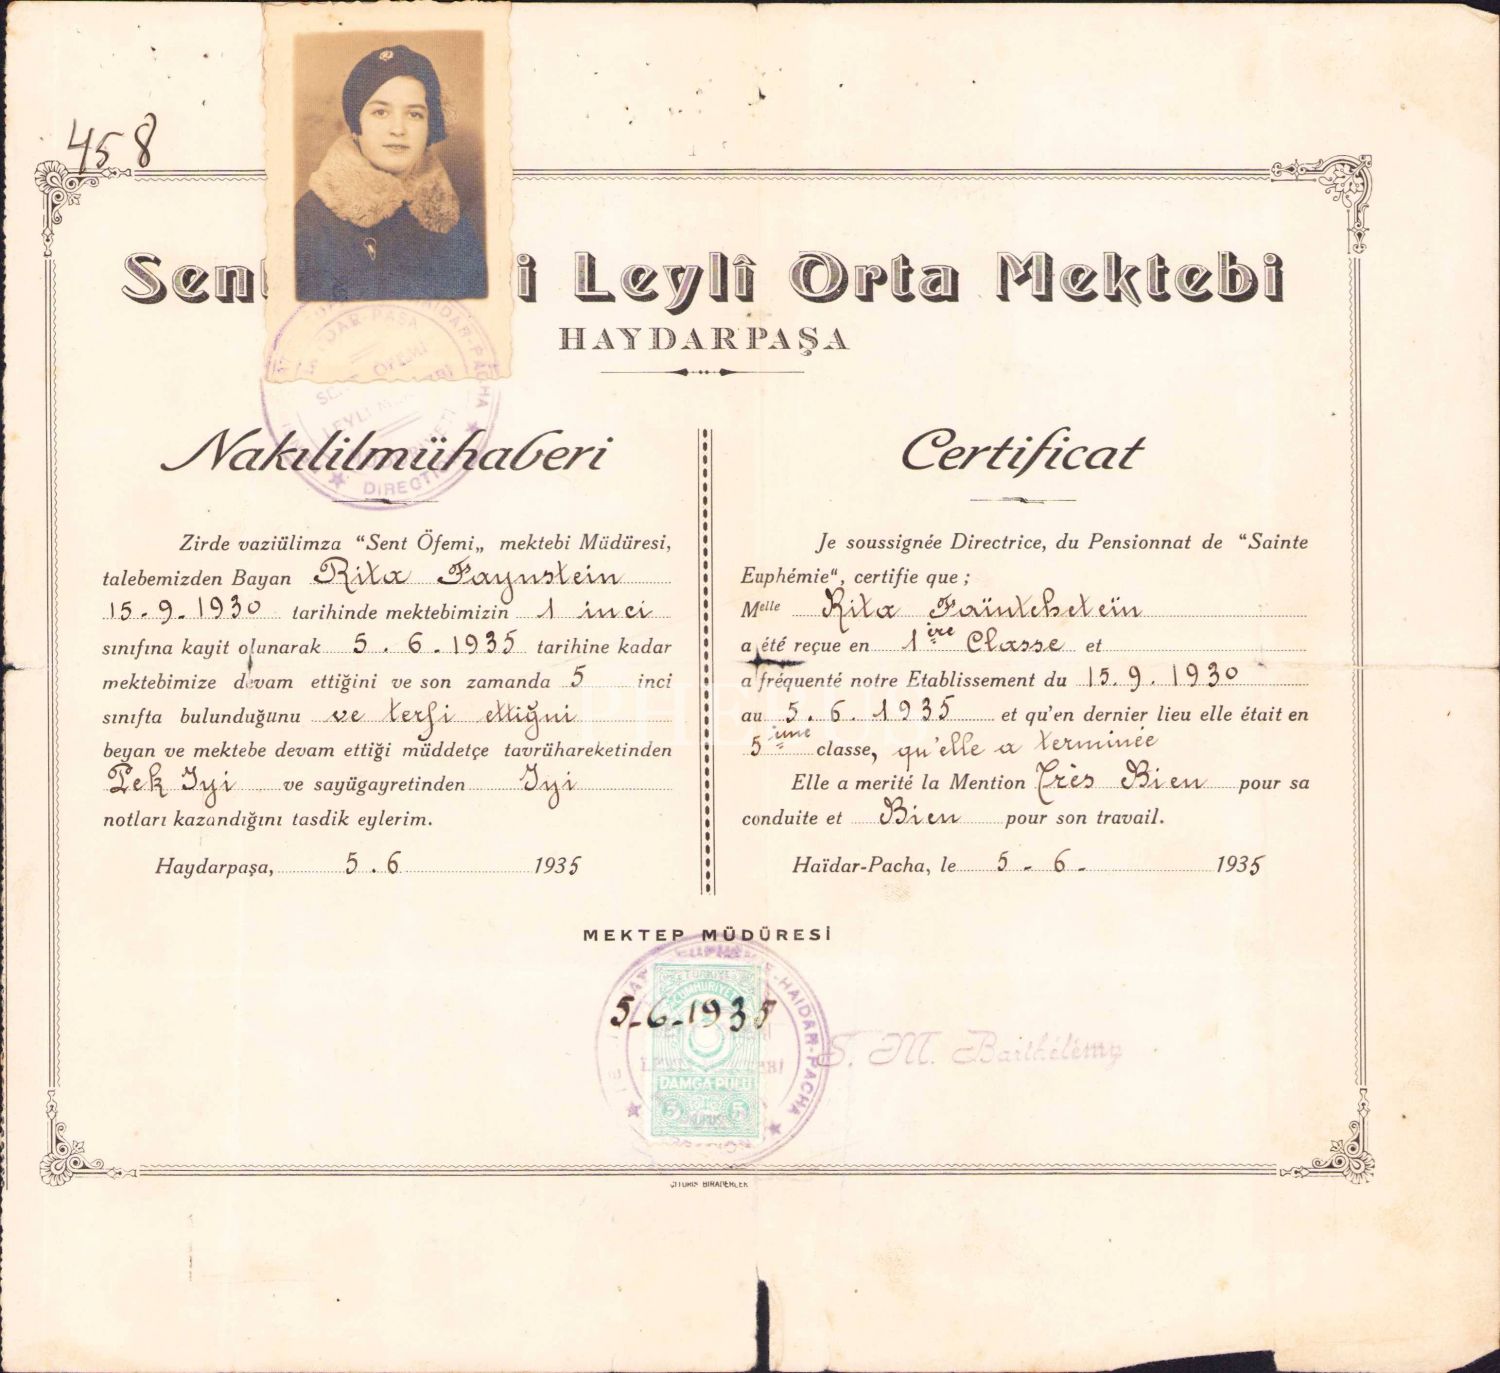 458
Sen i Leylî Orta Mektebi
HAYDARPAŞA
Nakılilmühaberi
Zirde vaziülimza “Sent Öfemi„ mektebi Müdüresi,
talebemizden Bayan Rita Faynstein
15-9-1930 tarihinde mektebimizin 1 inci
sınıfına kayit olunarak 5.6.1935 tarihine kadar
mektebimize devam ettiğini ve son zamanda 5 inci
sınıfta bulunduğunu ve terfi ettiğni
beyan ve mektebe devam ettiği müddetçe tavrühareketinden
Pek Iyi ve sayügayretinden Iyi
notları kazandığını tasdik eylerim.
Haydarpaşa, 5.6 1935
Certificat
Je soussignée Directrice, du Pensionnat de “Sainte
Euphémie“, certifie que ;
Melle Rita Faïntchteïn
a été reçue en 1ière Classe et
a fréquenté notre Etablissement du 15.9.1930
au 5.6.1935 et qu'en dernier lieu elle était en
5ième classe, qu'elle a terminée
Elle a merité la Mention Très Bien pour sa
conduite et Bien pour son travail.
Haïdar-Pacha, le 5-6- 1935
MEKTEP MÜDÜRESİ
TÜRKİYE
CUMHURİYETİ
5-6-1935
DAMGA PULU
5 KURUŞ 5
HAIDAR-PACHA
S. M. Barthélémy
BİRADERLER